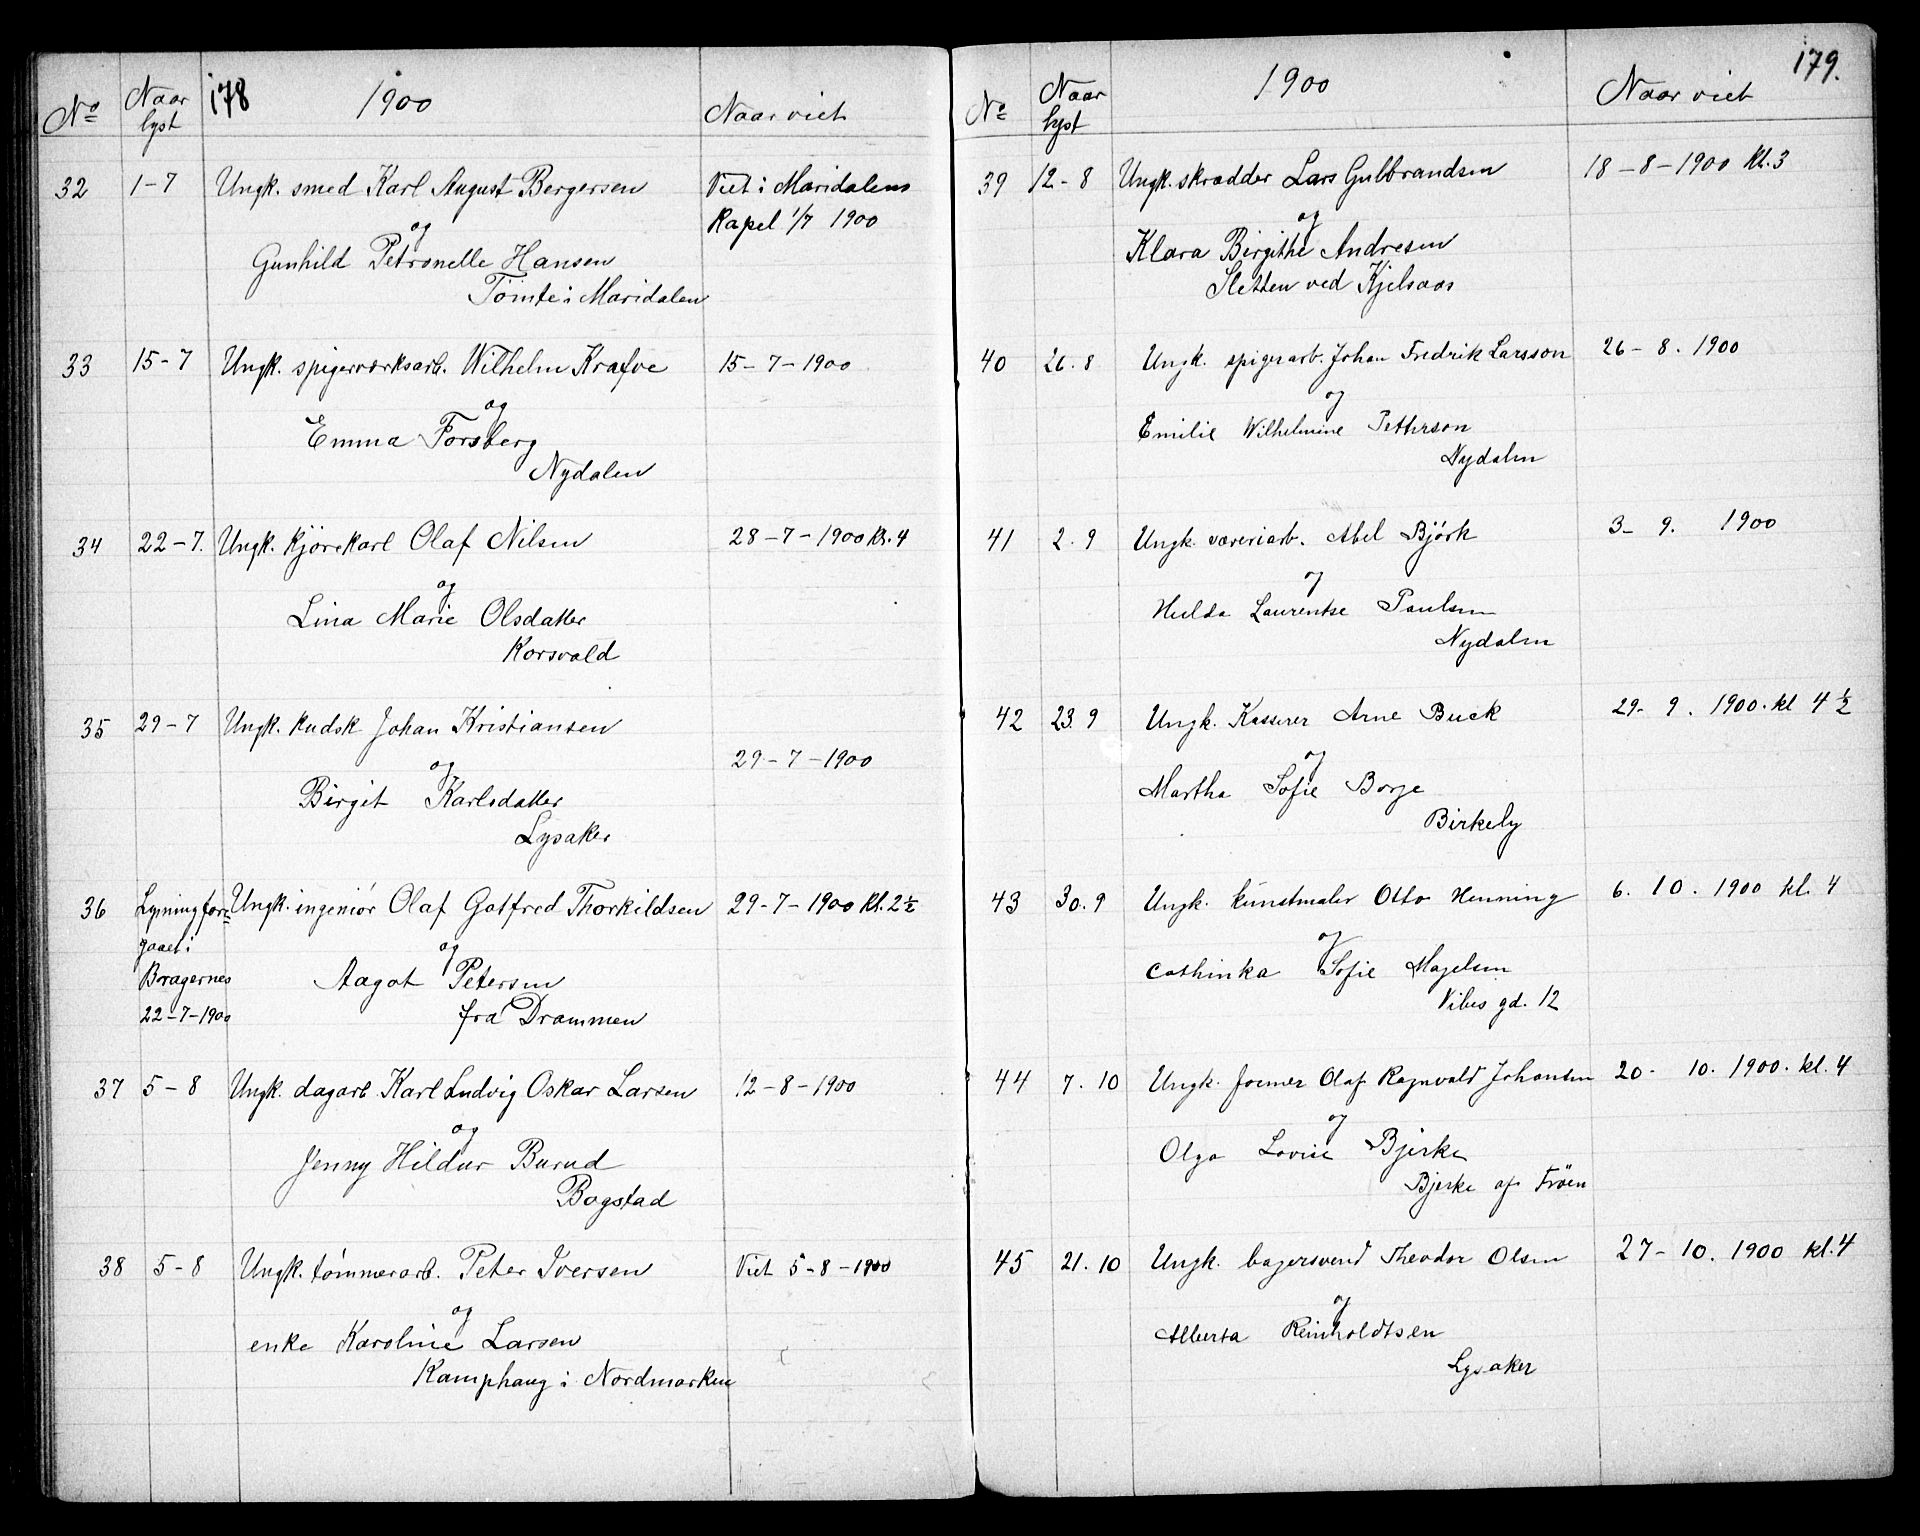 178
1900
No Naar lyst Naar viet
32 1-7 Ungk. smed Karl August Bergersen Viet i Maridalens
og Kapel 1/7 1900
Gunhild Petronelle Hansen
Tömte i Maridalen
33 15-7 Ungk. spigerværksarb. Wilhelm Krafve 15-7-1900
og
Emma Forsberg
Nydalen
34 22-7. Ungk. kjørekarl Olaf Nilsen 28-7-1900 Kl. 4
og
Lina Marie Olsdatter
Korsvold
35 29-7 Ungk. kudsk Johan Kristiansen
og 29-7-1900
Birgit Karlsdatter
Lysaker
36 Lysning fore- Ungk. ingeniør Olaf Gotfred Thorkildsen 29-7-1900 Kl. 2½
gaaet i og
Bragernes Aagot Petersen
22-7-1900 fra Drammen
37 5-8 Ungk. dagarb. Karl Ludvig Oskar Larsen 12-8-1900
og
Jenny Hildur Burud
Bogstad
38 5-8 Ungk. tømmerarb. Peter Iversen Viet 5-8-1900
og
enke Karoline Larsen
Kamphaug i Nordmarken
179.
1900
No Naar lyst Naar viet
39 12-8 Ungk. skrædder Lars Gulbrandsen 18-8-1900 Kl. 3
og
Klara Birgithe Andresen
Sletten ved Kjelsaas
40 26.8 Ungk. spigerarb. Johan Fredrik Larsson 26-8. 1900
og
Emilie Wilhelmine Petterson
Nydalen
41 2.9 Ungk. væveriarb. Abel Bjørk 3-9. 1900
og
Hulda Laurentse Paulsen
Nydalen
42 23.9 Ungk. Kasserer Arne Buck 29-9. 1900. kl 4½
og
Martha Sofie Borge
Birkely
43 30.9 Ungk. kunstmaler Otto Henning 6. 10. 1900 kl. 4
og
Cathinka Sofie Magelsen
Vibes gd. 12
44 7.10 Ungk. former Olaf Ragnvald Johansen 20- 10. 1900. kl. 4
og
Olga Lovise Bjerke
Bjerke af Frøen
45 21.10 Ungk. bagersvend Theodor Olsen 27-10. 1900 kl. 4
og
Alberta Reinholdtsen
Lysaker